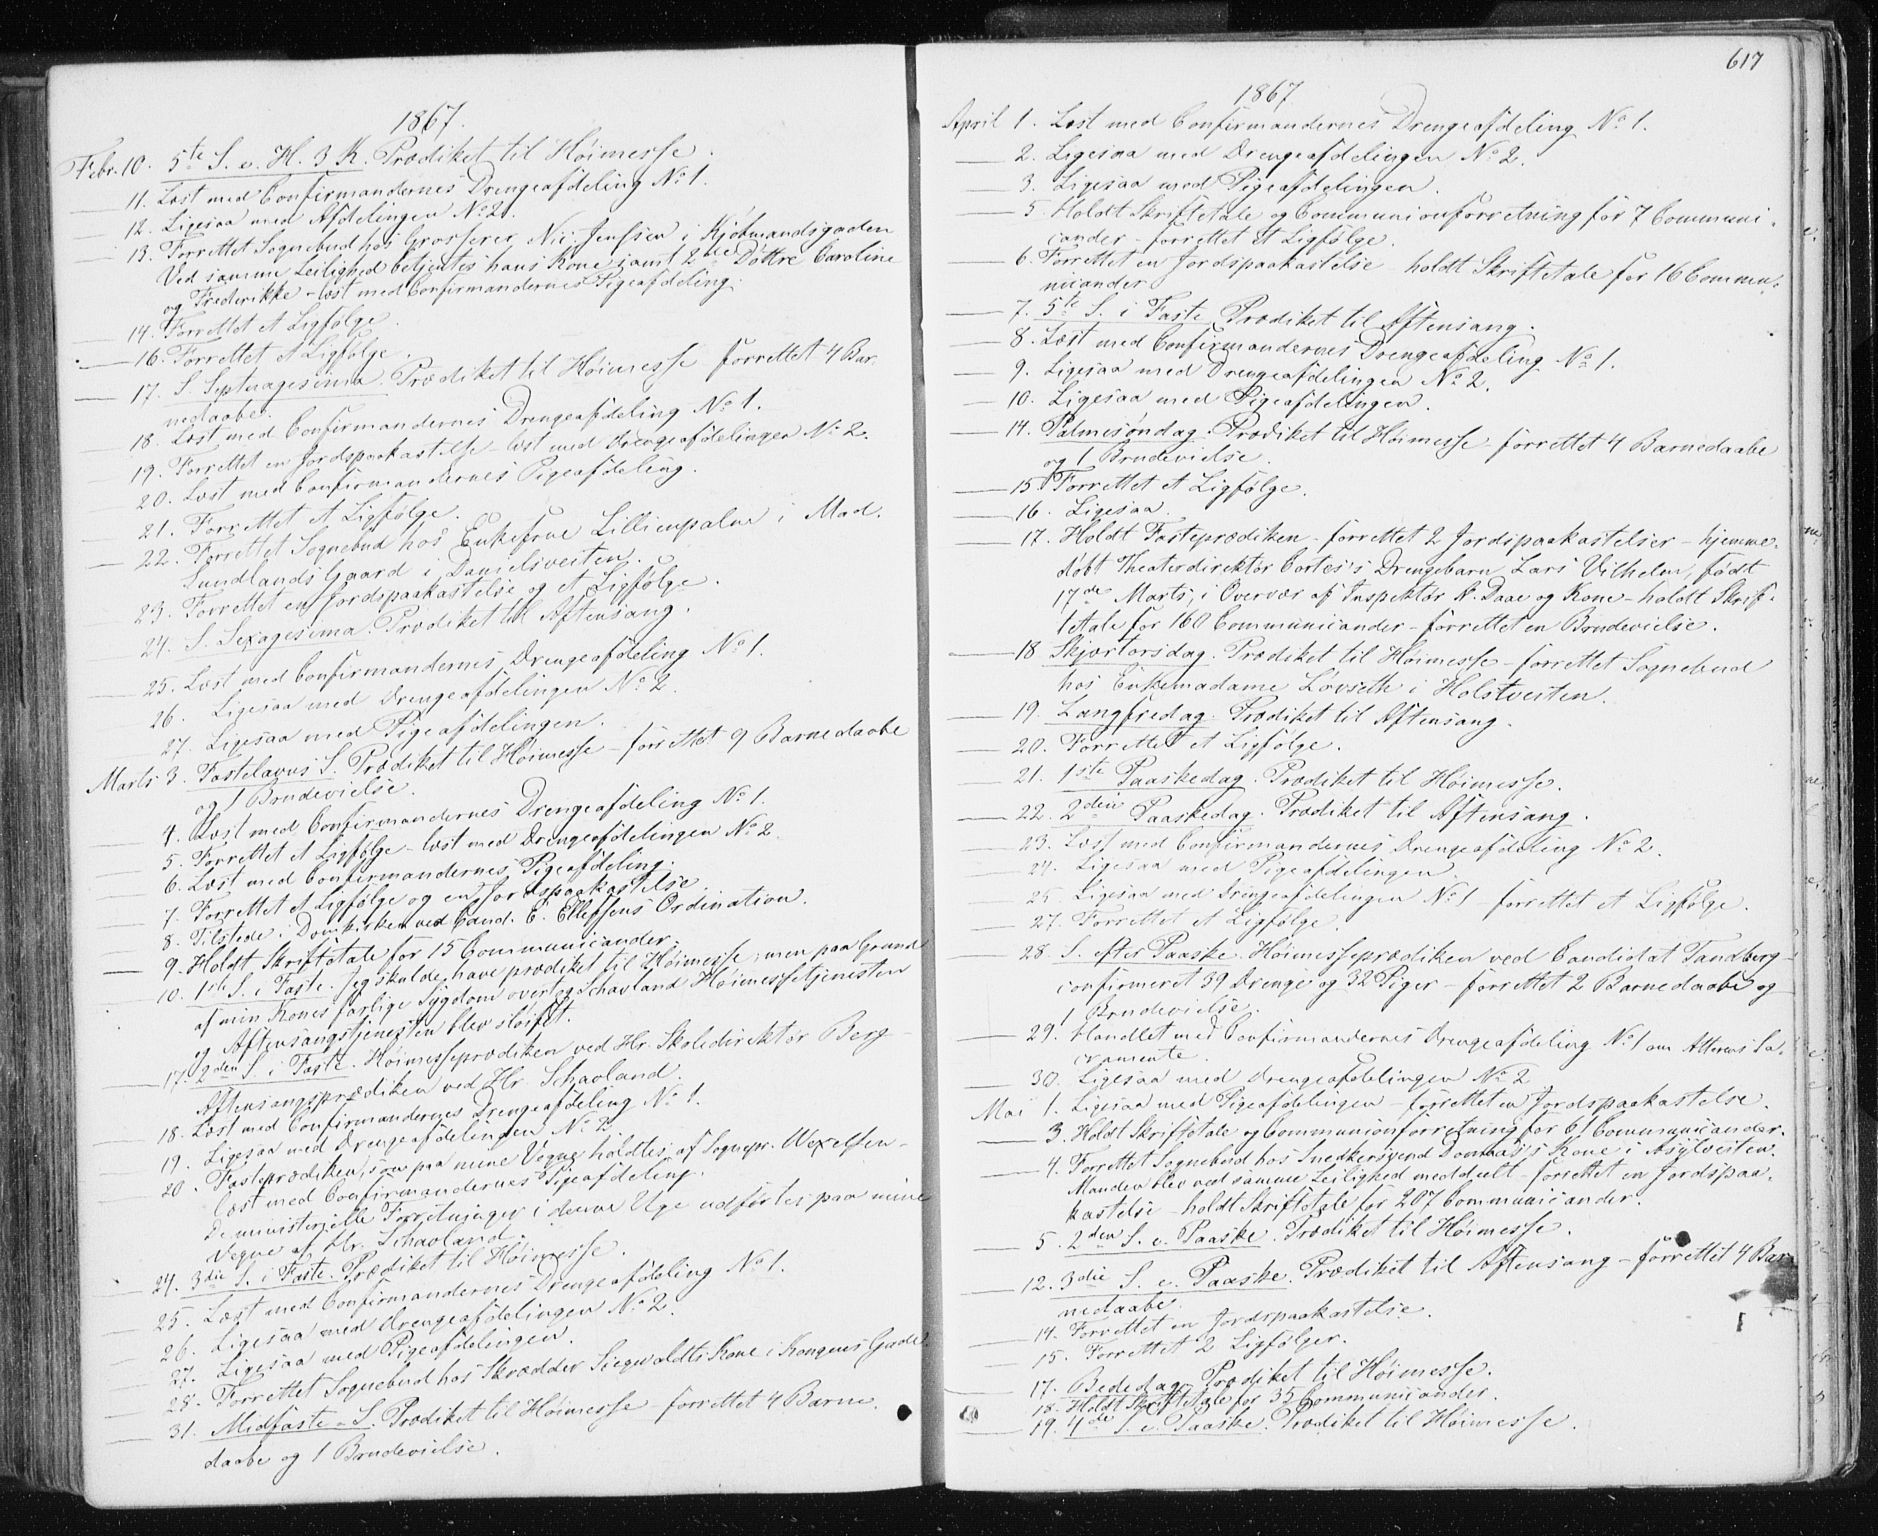 1867.
Febr. 10. 5te S. e. H. 3 K. Prædiket til Høimesse.
11. Læst med Confirmandernes Drengeafdeling No 1.
12. Ligesaa med Afdelingen No 2.
13. Forrettet Sognebud hos Grosserer Nic. Jenssen i Kjøbmandsgaden
Ved samme Leilighed betjentes hans Kone samt 2de Døttre Caroline
og Frederikke - læst med Confirmandernes Pigeafdeling.
14. Forrettet et Ligfølge.
16. Forrettet et Ligfølge.
17. S. Septuagesima. Prædiket til Høimesse forrettet 4 Bar-
nedaabe.
18. Læst med Confirmandernes Drengeafdeling No 1.
19. Forrettet en Jordspaakastelse - læst med Drengeafdelingen No 2.
20. Læst med Confirmandernes Pigeafdeling.
21. Forrettet et Ligfølge.
22. Forrettet Sognebud hos Enkefrue Lillienpalm i Mad.
Sundlands Gaard i Danielsveiten.
23. Forrettet en Jordspaakastelse og et Ligfølge.
24. S. Sexagesima. Prædiket til Aftensang.
25. Læst med Confirmandernes Drengeafdeling No 1.
26. Ligesaa med Drengeafdelingen No 2.
27. Ligesaa med Pigeafdelingen.
Marts 3. Fastelavns S. Prædiket til Høimesse - forrettet 9 Barnedaabe
og 1 Brudevielse.
4. Læst med Confirmandernes Drengeafdeling No 1.
5. Forrettet et Ligfølge - læst med Drengeafdelingen No 2.
6. Læst med Confirmandernes Pigeafdeling.
7. Forrettet et Ligfølge og en Jordspaakastelse.
8. Tilstede i Domkirken ved Cand. E. Ellefsens Ordination.
9. Holdt Skriftetale for 15 Communicander.
10. 1ste S. i Faste. Jeg skulde have prædiket til Høimesse, men paa Grund
af min Kones farlige Sygdom overtog Schavland Høimessetjenesten
og Aftensangstjenesten blev sløifet.
17. 2den S. i Faste. Høimesseprædiken ved Hr. Skoledirektør Berg -
Aftensangsprædiken ved Hr. Schavland.
18. Læst med Confirmandernes Drengeafdeling No 1.
19. Ligesaa med Drengeafdelingen No 2.
20. Fasteprædiken, som paa mine Vegne holdtes af Sognepr. Wexelsen -
læst med Confirmandernes Pigeafdeling.
De ministerielle Forretninger i denne Uge udførtes paa mine
Vegne af Hr. Schavland.
24. 3die S. i Faste. Prædiket til Høimesse.
25. Læst med Confirmandernes Drengeafdeling No 1.
26. Ligesaa med Drengeafdelingen No 2.
27. Ligesaa med Pigeafdelingen.
28. Forrettet Sognebud hos Skrædder Siegwaldts Kone i Kongens Gade.
31. Midfaste-S. Prædiket til Høimesse - forrettet 4 Barne-
daabe og 1 Brudevielse.
617
1867
April 1. Læst med Confirmandernes Drengeafdeling No 1.
2. Ligesaa med Drengeafdelingen No 2.
3. Ligesaa med Pigeafdelingen.
5. Holdt Skriftetale og Communionforretning for 7 Communi-
cander - forrettet et Ligfølge.
6. Forrettet en Jordspaakastelse - holdt Skriftetale for 16 Commu-
nicander.
7. 5te S. i Faste. Prædiket til Aftensang.
8. Læst med Confirmandernes Drengeafdeling No 1.
9. Ligesaa med Drengeafdelingen No 2.
10. Ligesaa med Pigeafdelingen.
14. Palmesøndag. Prædiket til Høimesse - forrettet 4 Barnedaabe
og 1 Brudevielse.
15. Forrettet et Ligfølge.
16. Ligesaa.
17. Holdt Fasteprædiken - forrettet 2 Jordspaakastelser - hjemme-
døbt Theaterdirektør Cortes's Drengebarn, Lars Vilhelm, født
17de Marts, i Overvær af Inspektør A. Daae og Kone - holdt Skrif-
tetale for 160 Communicander - forrettet en Brudevielse.
18. Skjærtorsdag. Prædiket til Høimesse - forrettet Sognebud
hos Enkemadame Løvseth i Holstveiten.
19. Langfredag. Prædiket til Aftensang.
20. Forrettet et Ligfølge.
21. 1ste Paaskedag. Prædiket til Høimesse.
22. 2den Paaskedag. Prædiket til Aftensang.
23. Læst med Confirmandernes Drengeafdeling No 2.
24. Ligesaa med Pigeafdelingen.
25. Ligesaa med Drengeafdelingen No 1 - forrettet et Ligfølge.
27. Forrettet et Ligfølge.
28. S. efter Paaske. Høimesseprædiken ved Candidat Tandberg -
confirmeret 39 Drenge og 32 Piger - forrettet 2 Barnedaabe og
1 Brudevielse.
29. Handlet med Confirmandernes Drengeafdeling No 1 om Alterens Sa-
cramente.
30. Ligesaa med Drengeafdelingen No 2
Mai 1. Ligesaa med Pigeafdelingen - forrettet en Jordspaakastelse.
3. Holdt Skriftetale og Communionforretning for 61 Communicander.
4. Forrettet Sognebud hos Snedkersvend Dommas's Kone i Asylveiten.
Manden blev ved samme Leilighed meddeelt - forrettet en Jordspaa-
kastelse - holdt Skriftetale for 207 Communicander.
5. 2den S. e. Paaske. Prædiket til Høimesse.
12. 3die S. e. Paaske. Prædiket til Aftensang - forrettet 4 Bar-
nedaabe.
14. Forrettet en Jordspaakastelse.
15. Forrettet 2 Ligfølger.
17. Bededag. Prædiket til Høimesse.
18. Holdt Skriftetale for 35 Communicander.
19. 4de S. e. Paaske. Prædiket til Høimesse.